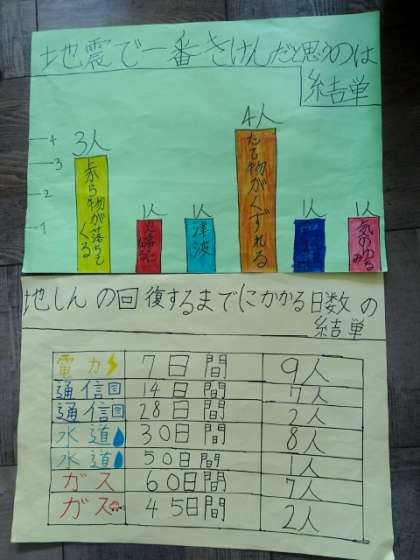 地震で一番きけんだと思うのは
結果
4人
3人
1人
1人
1人
1人
4
3
2
1
落ちてくる
津波
たて物がくずれる
気のゆるみ
地しんの回復するまでにかかる日数の
結果
電力 7日間 9人
通信 14日間 7人
通信 28日間 2人
水道 30日間 8人
水道 50日間 1人
ガス 60日間 7人
ガス 45日間 2人